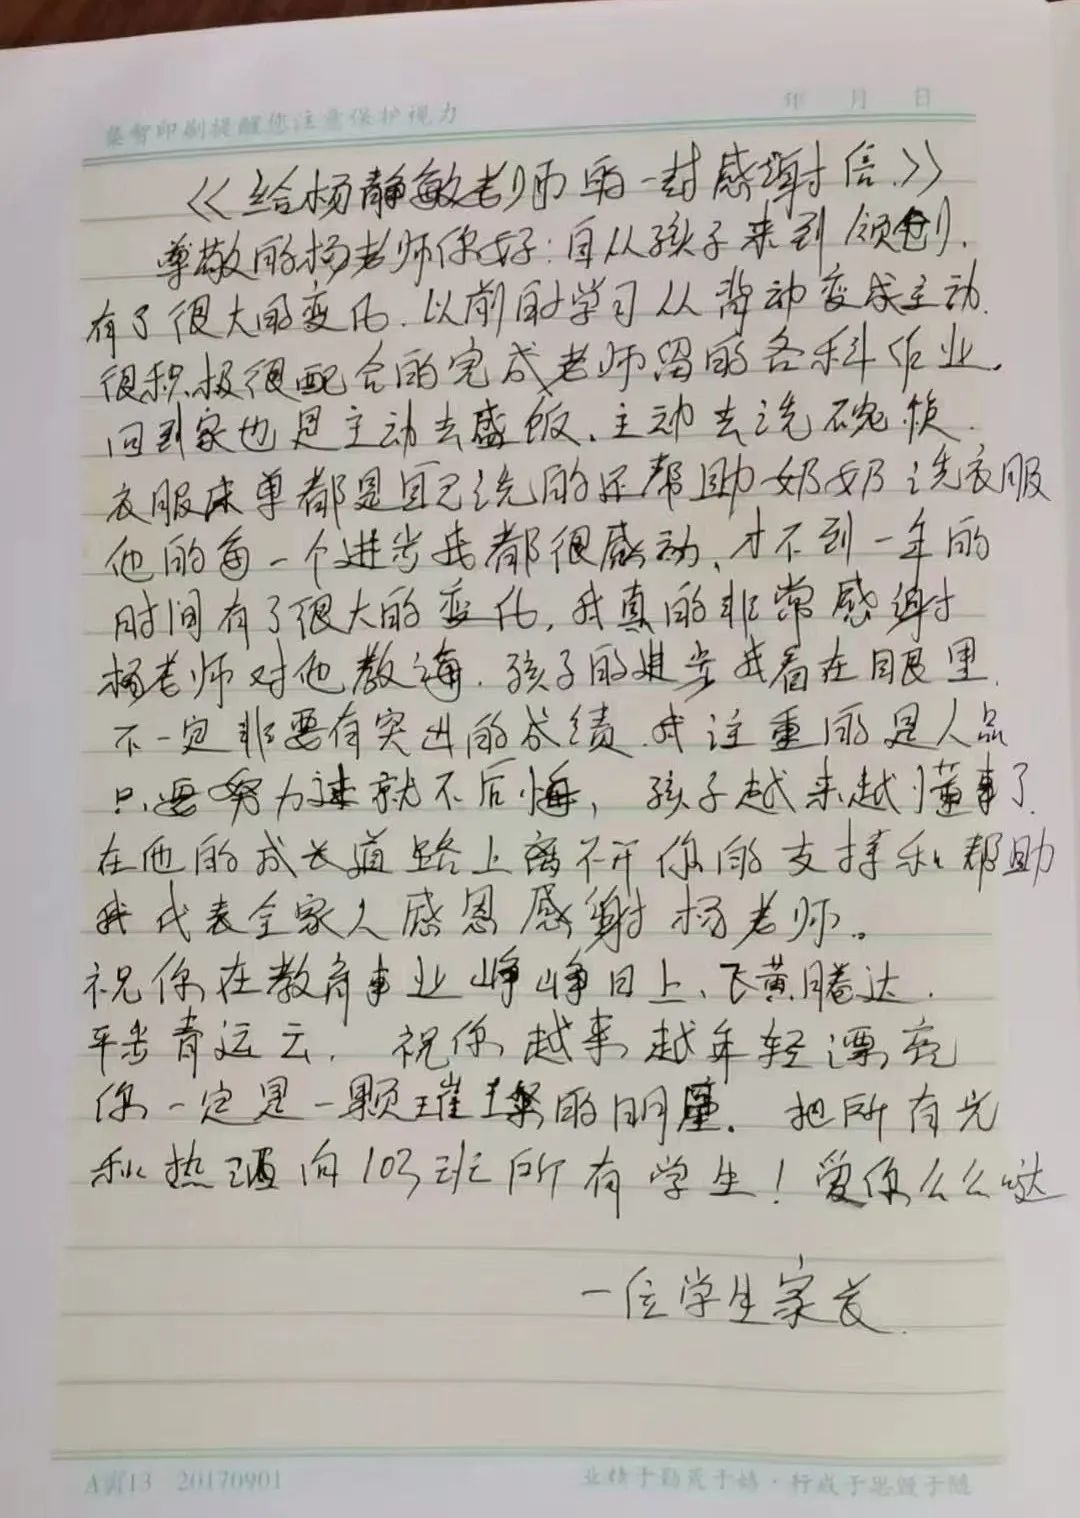 集智印刷提醒您注意保护视力 年 月 日
《给杨静敏老师的一封感谢信.》
尊敬的杨老师你好:自从孩子来到领创,
有了很大的变化.以前的学习从背动变成主动.
很积极很配合的完成老师留的各科作业.
回到家也是主动去盛饭、主动去洗碗筷.
衣服床单都是自己洗的还帮助奶奶洗衣服
他的每一个进步我都很感动、才不到一年的
时间有了很大的变化,我真的非常感谢
杨老师对他教诲.孩子的进步我看在眼里.
不一定非要有突出的成绩.我注重的是人品
只要努力过就不后悔,孩子越来越懂事了.
在他的成长道路上离不开你的支持和帮助
我代表全家人感恩感谢杨老师。
祝你在教育事业峥峥日上、飞黄腾达.
平步青运云.祝你越来越年轻漂亮
你一定是一颗璀璨的明星.把所有光
和热洒向103班所有学生!爱你么么哒
一位学生家长.
A页13 20170901 业精于勤荒于嬉·行成于思毁于随